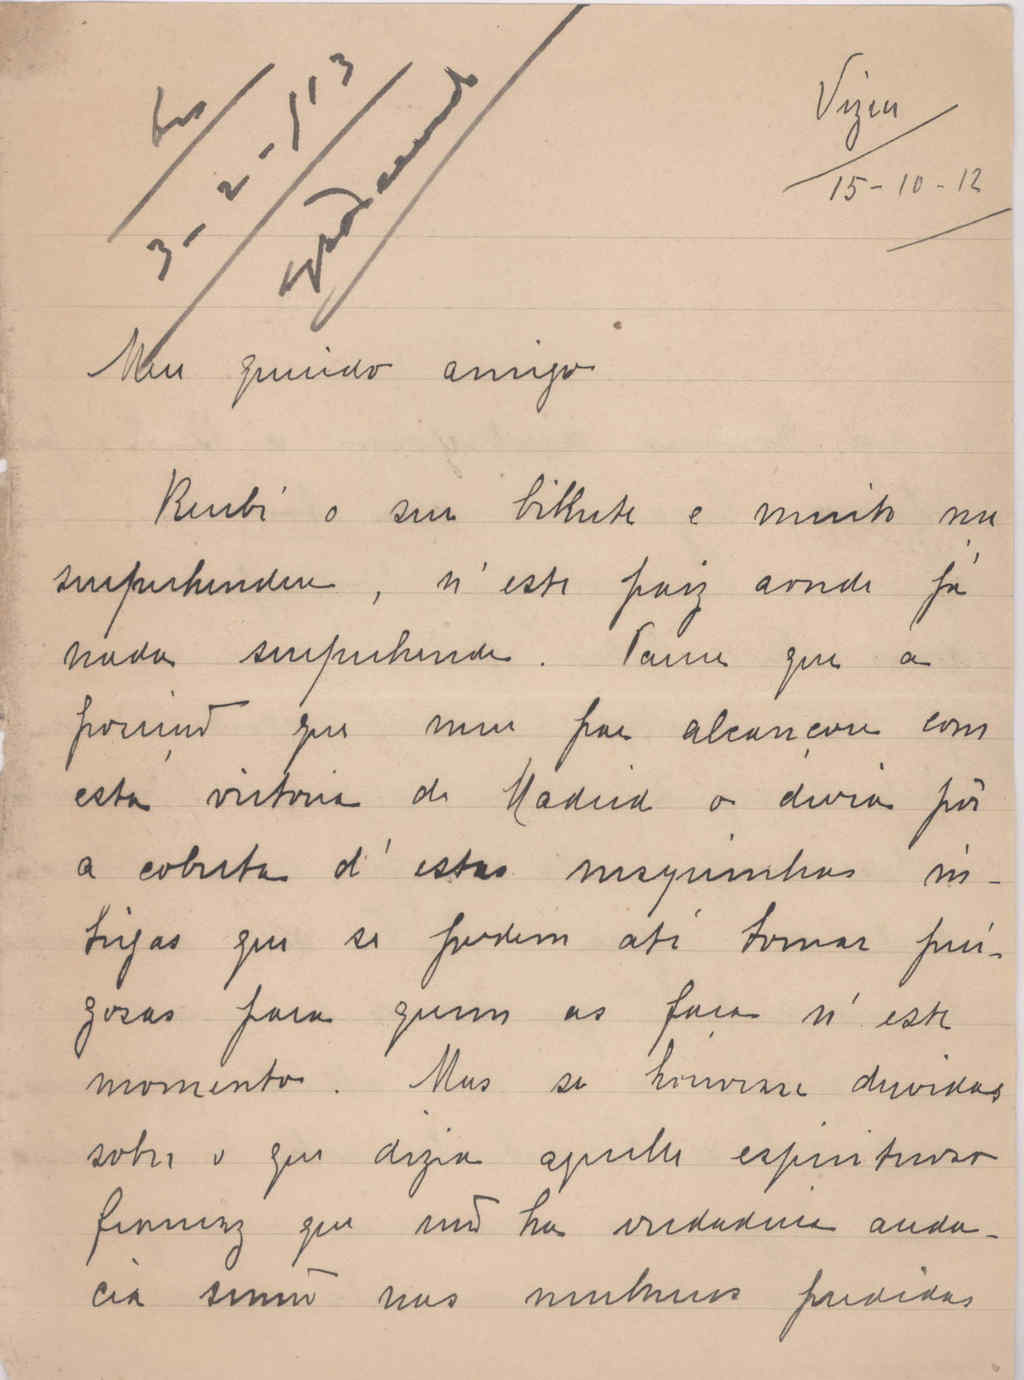 Vizeu
15-10-12
3-2-913
Meu querido amigo
Recebi o seu bilhete e muito me
surprehendeu, n'este paiz aonde já
nada surprehende. Parece que a
posição que meu pae alcançou com
esta victoria de Madrid o devia pôr
a coberta d'estas mesquinhas in-
trigas que se podem até tornar peri-
gosas para quem as faça n'este
momento. Mas se houvesse duvidas
sobre o que dizia aquelle espirituoso
francez que não ha verdadeira auda-
cia senão nas mulheres perdidas